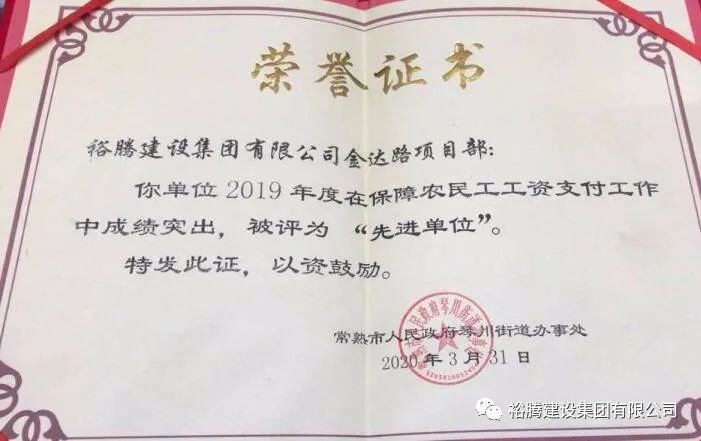 荣誉证书
裕腾建设集团有限公司金达路项目部:
你单位 2019 年度在保障农民工工资支付工作
中成绩突出，被评为“先进单位”。
特发此证，以资鼓励。
常熟市人民政府琴川街道办事处
2020 年 3 月 31 日
裕腾建设集团有限公司